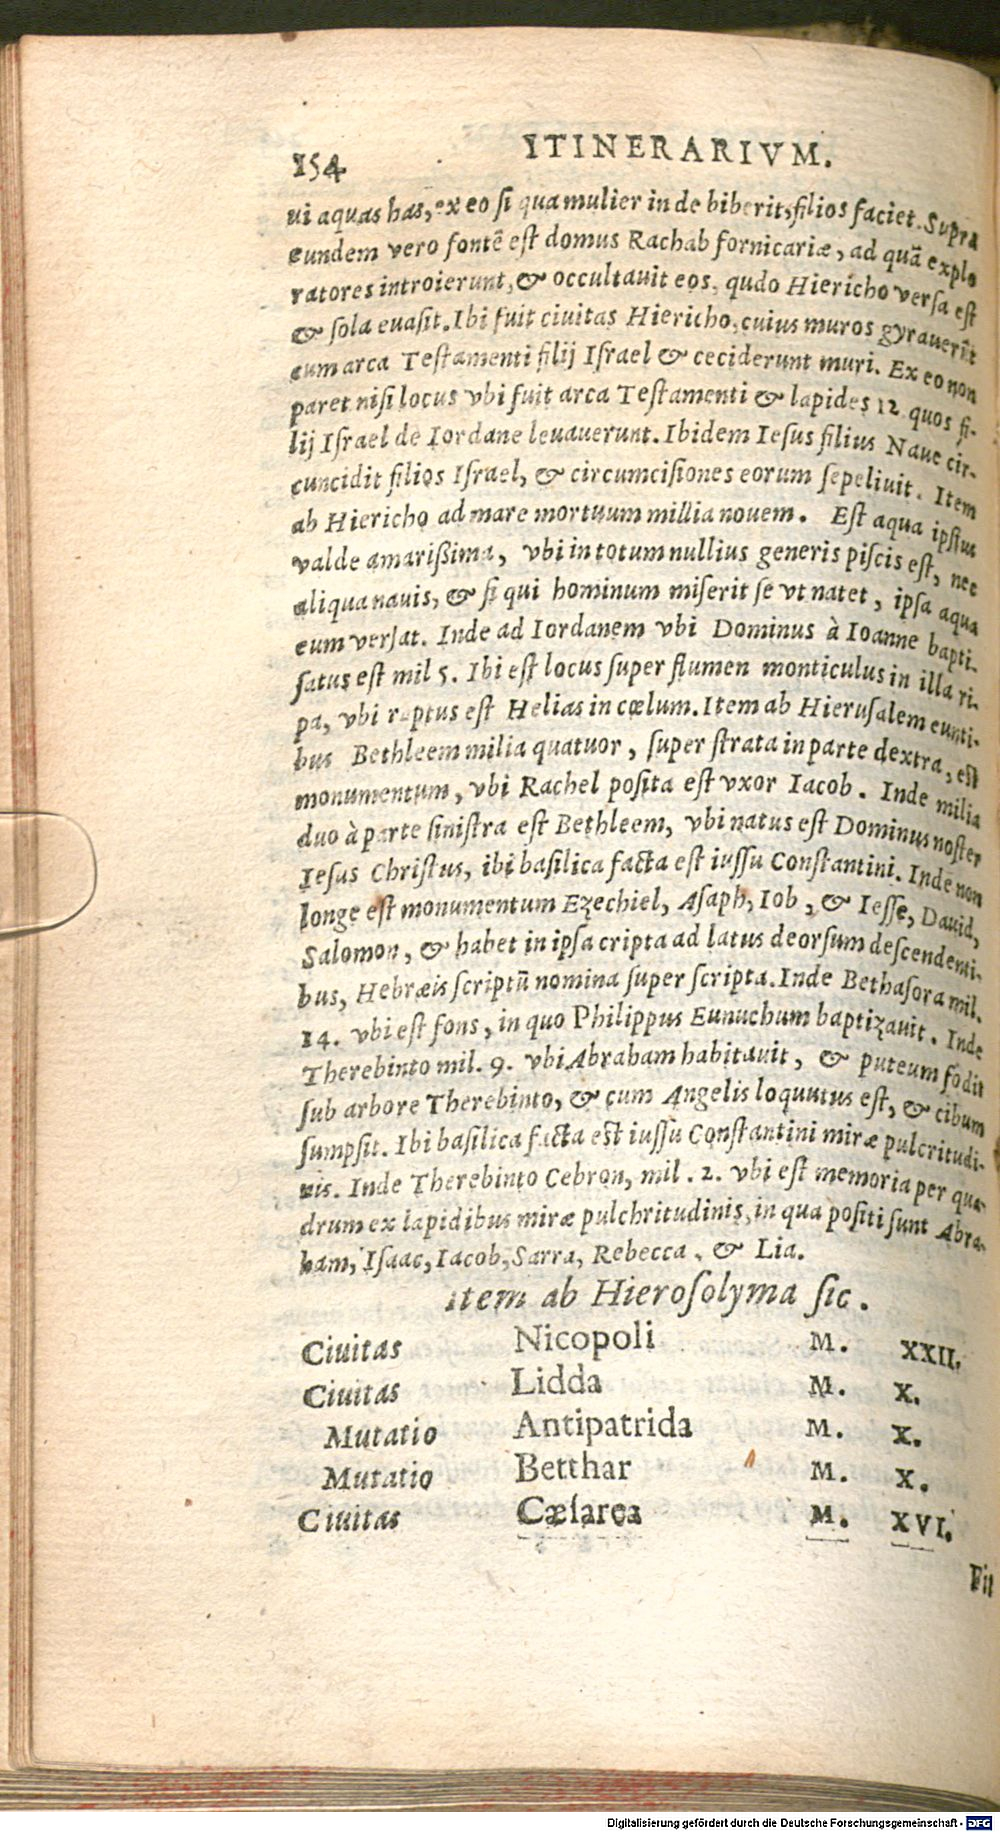 154 ITINERARIVM.
ui aquas has, ex eo si qua mulier inde biberit, filios faciet. Supra
eundem vero fontē est domus Rachab fornicariæ, ad quā explo
ratores introierunt, & occultauit eos, qudo Hiericho versa est
& sola euasit. Ibi fuit ciuitas Hiericho, cuius muros gyrauerūt
cum arca Testamenti filij Israel & ceciderunt muri. Ex eo non
paret nisi locus vbi fuit arca Testamenti & lapides 12 quos fi-
lij Israel de Iordane leuauerunt. Ibidem Iesus filius Naue cir-
cuncidit filios Israel, & circumcisiones eorum sepeliuit. Item
ab Hiericho ad mare mortuum millia nouem. Est aqua ipsius
valde amarißima, vbi in totum nullius generis piscis est, nec
aliqua nauis, & si qui hominum miserit se vt natet, ipsa aqua
eum versat. Inde ad Iordanem vbi Dominus à Ioanne bapti-
satus est mil 5. Ibi est locus super flumen monticulus in illa ri-
pa, vbi raptus est Helias in cœlum. Item ab Hierusalem eunti-
bus Bethleem milia quatuor, super strata in parte dextra, est
monumentum, vbi Rachel posita est vxor Iacob. Inde milia
duo à parte sinistra est Bethleem, vbi natus est Dominus noster
Iesus Christus, ibi basilica facta est iussu Constantini. Inde non
longe est monumentum Ezechiel, Asaph, Iob, & Iesse, Dauid,
Salomon, & habet in ipsa cripta ad latus deorsum descendenti-
bus, Hebræis scriptū nomina super scripta. Inde Bethasora mil.
14. vbi est fons, in quo Philippus Eunuchum baptizauit. Inde
Therebinto mil. 9. vbi Abraham habitauit, & puteum fodit
sub arbore Therebinto, & cum Angelis loquutus est, & cibum
sumpsit. Ibi basilica facta est iussu Constantini miræ pulcritudi-
nis. Inde Therebinto Cebron, mil. 2. vbi est memoria per qua-
drum ex lapidibus miræ pulchritudinis, in qua positi sunt Abra-
ham, Isaac, Iacob, Sarra, Rebecca, & Lia.
Item ab Hierosolyma sic.
Ciuitas Nicopoli M. XXII.
Ciuitas Lidda M. X.
Mutatio Antipatrida M. X.
Mutatio Betthar M. X.
Ciuitas Cæsarea M. XVI.
Fit
Digitalisierung gefördert durch die Deutsche Forschungsgemeinschaft - DFG